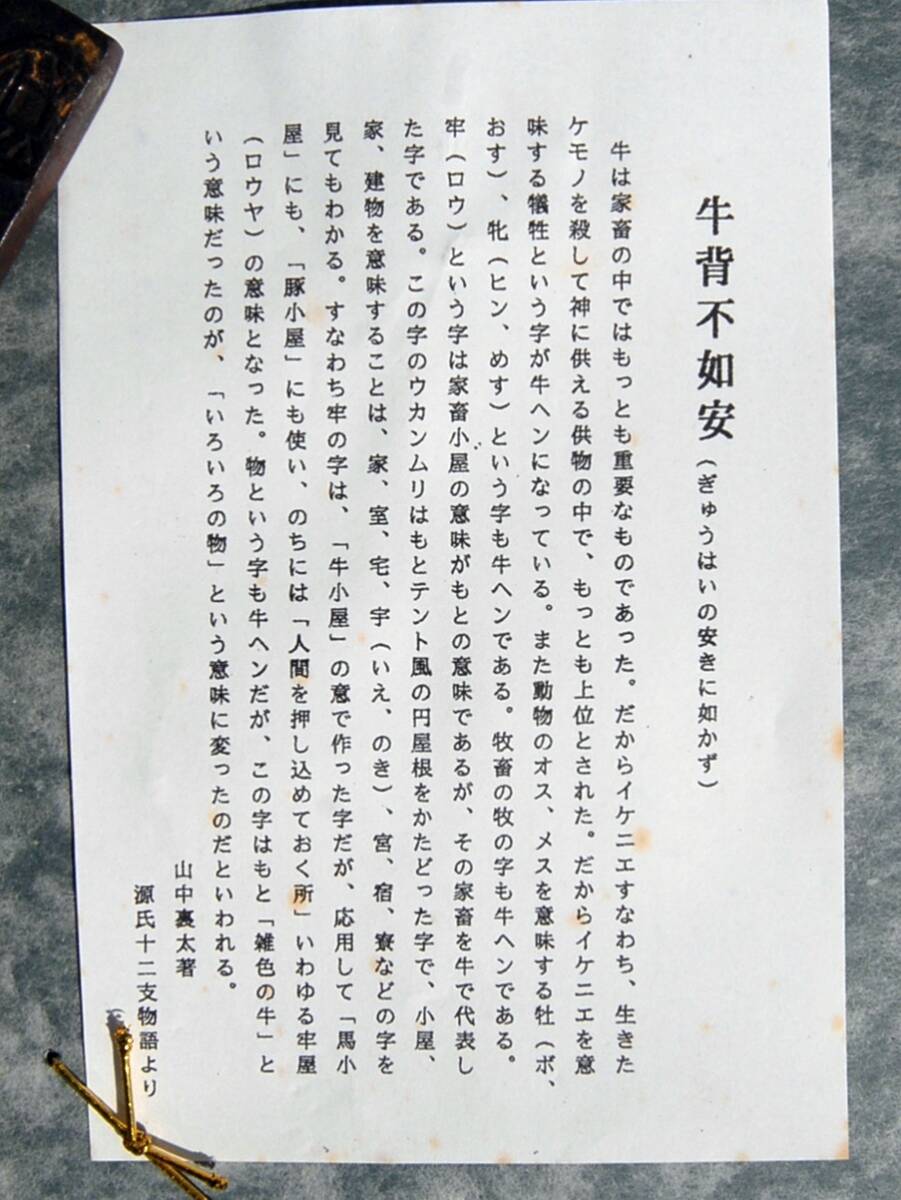 牛背不如安（ぎゅうはいの安きに如かず）
牛は家畜の中ではもっとも重要なものであった。だからイケニエすなわち、生きた
ケモノを殺して神に供える供物の中で、もっとも上位とされた。だからイケニエを意
味する犠牲という字が牛ヘンになっている。また動物のオス、メスを意味する牡（ボ、
おす）、牝（ヒン、めす）という字も牛ヘンである。牧畜の牧の字も牛ヘンである。
牢（ロウ）という字は家畜小屋の意味がもとの意味であるが、その家畜を牛で代表し
た字である。この字のウカンムリはもとテント風の円屋根をかたどった字で、小屋、
家、建物を意味することは、家、室、宅、宇（いえ、のき）、宮、宿、寮などの字を
見てもわかる。すなわち牢の字は、「牛小屋」の意で作った字だが、応用して「馬小
屋」にも、「豚小屋」にも使い、のちには「人間を押し込めておく所」いわゆる牢屋
（ロウヤ）の意味となった。物という字も牛ヘンだが、この字はもと「雑色の牛」と
いう意味だったのが、「いろいろの物」という意味に変ったのだといわれる。
山中裏太著
源氏十二支物語より